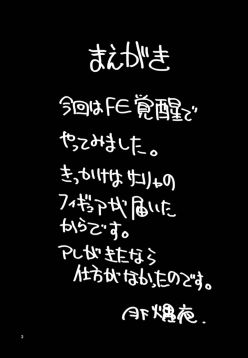 まえがき
今回はFE覚醒で
やってみました。
きっかけはサーリャの
フィギュアが届いた
からです。
アレがきたなら
仕方がなかったのです。